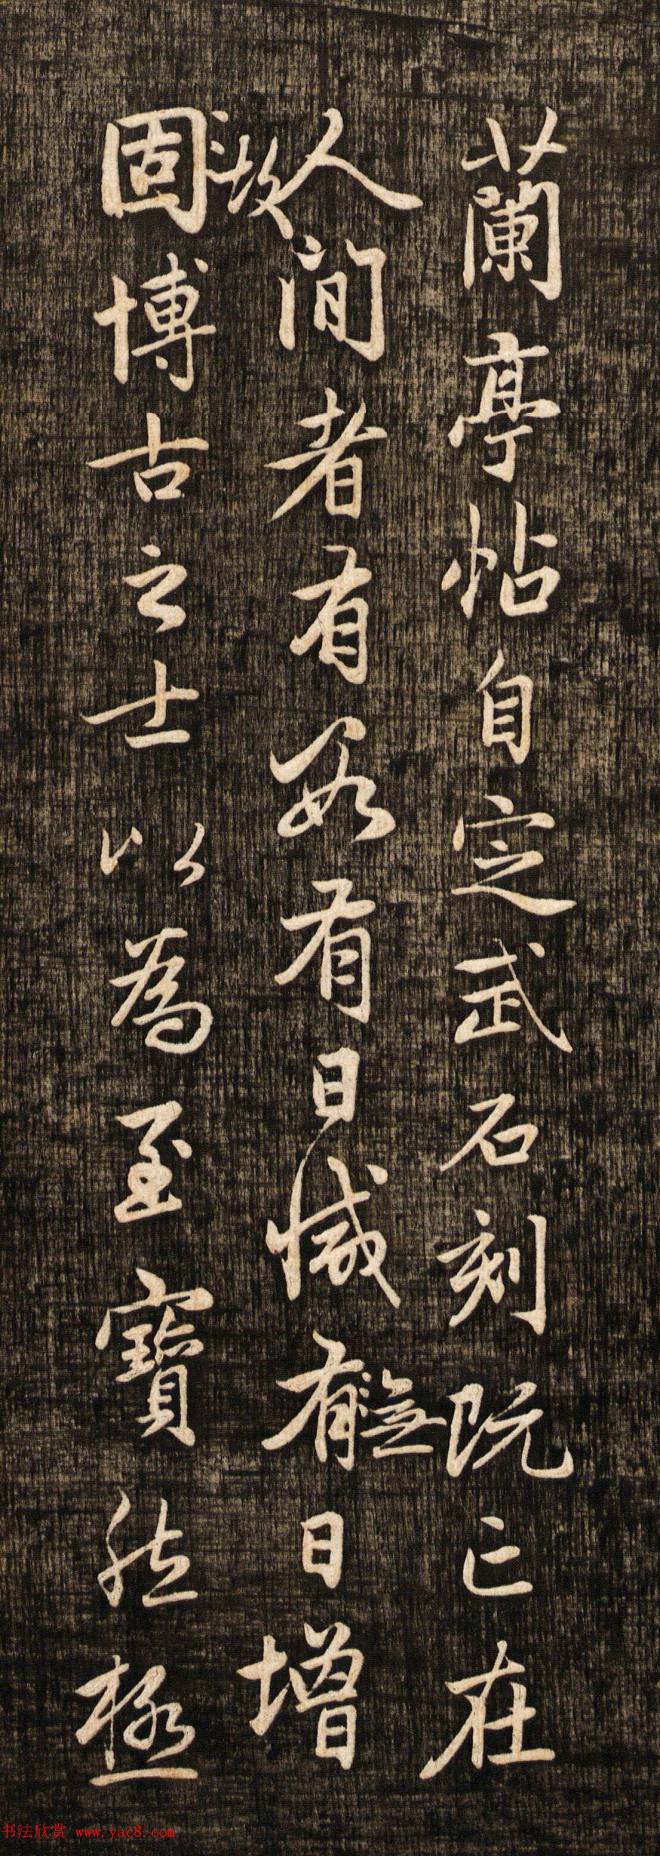 蘭亭帖自定武石刻既亡在
人間者有數有日減有無日增
固故博古之士以為至寶然極
书法欣赏 www.yac8.com